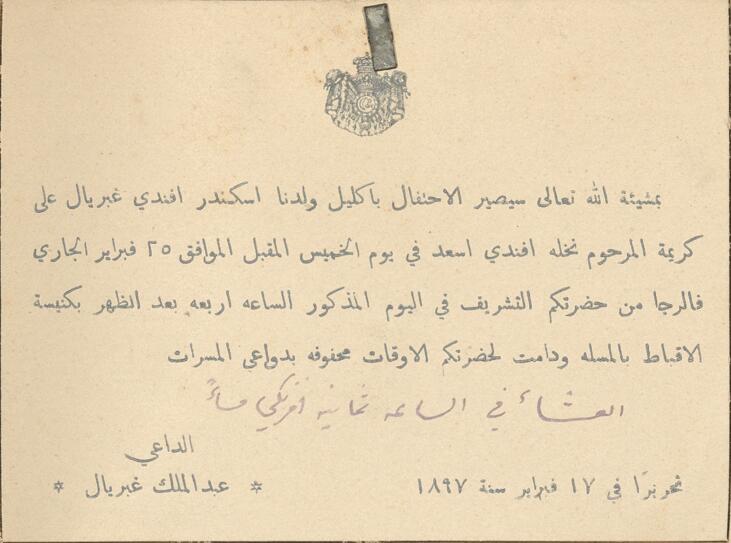 بمشيئة الله تعالى سيصير الاحتفال باكليل ولدنا اسكندر افندي غبريال على
كريمة المرحوم نخله افندي اسعد في يوم الخميس المقبل الموافق ٢٥ فبراير الجاري
فالرجا من حضرتكم التشريف في اليوم المذكور الساعه اربعه بعد الظهر بكنيسة
الاقباط بالمسله ودامت لحضرتكم الاوقات محفوفه بدواعي المسرات
العشاء في الساعه ثمانيه افرنكي مساءً
الداعي
تحريرًا في ١٧ فبراير سنة ١٨٩٧
* عبدالملك غبريال *